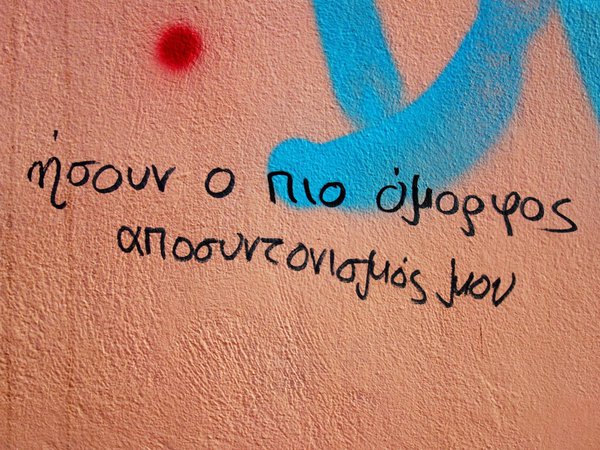 ήσουν ο πιο όμορφος
αποσυντονισμός μου